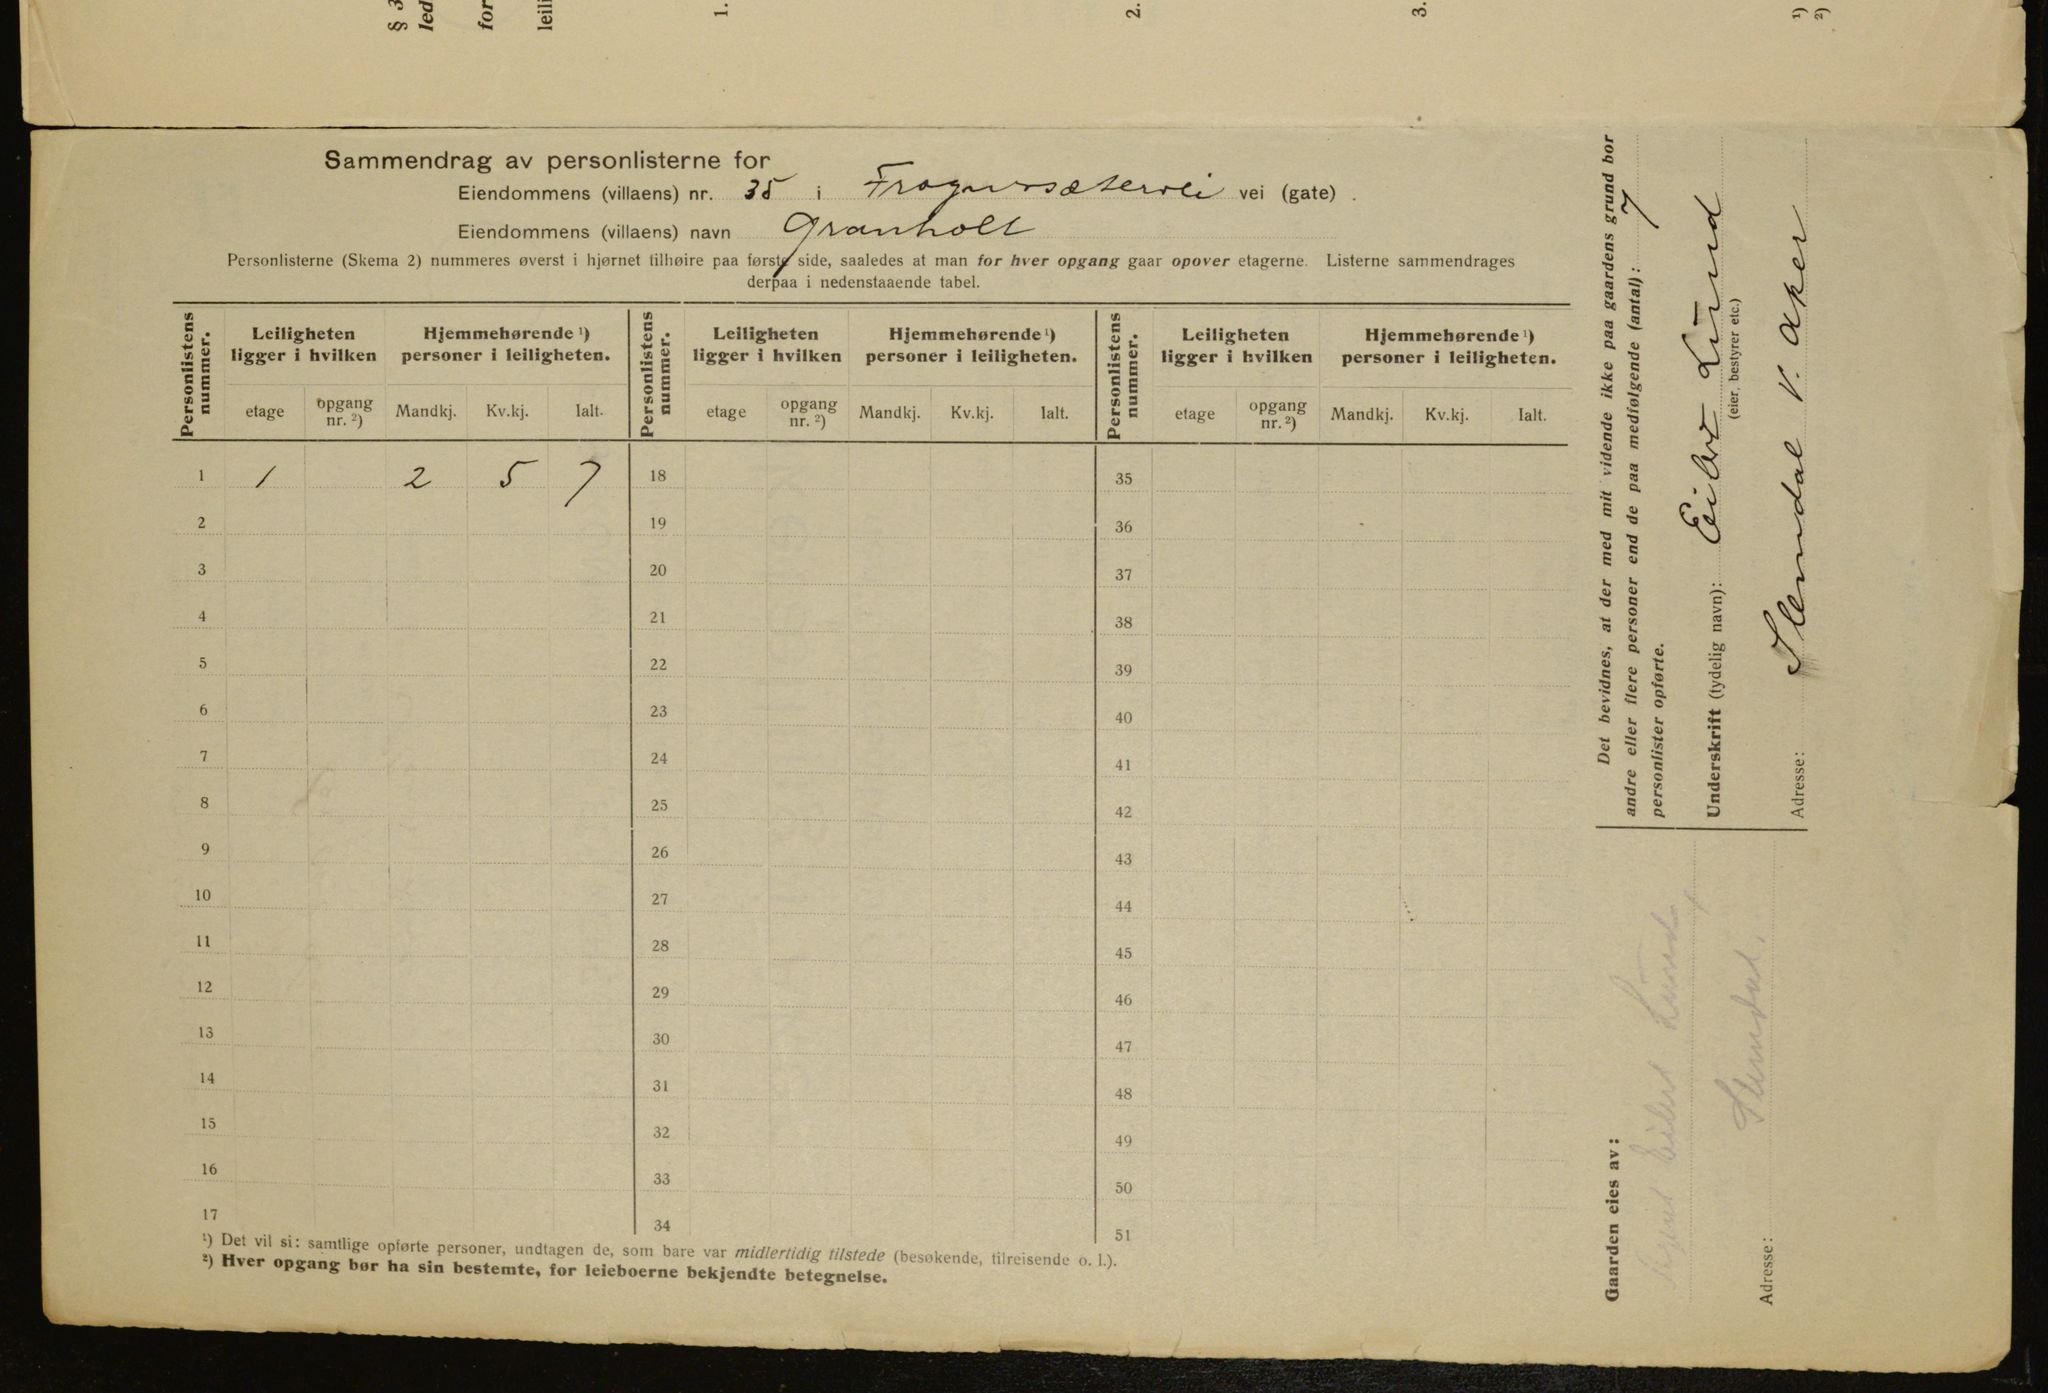 § 3
led
for
leili
1.
2.
3.
¹)
²)
Sammendrag av personlisterne for
Eiendommens (villaens) nr. 35 i Frognersætervei vei (gate).
Eiendommens (villaens) navn Granholt
Personlisterne (Skema 2) nummeres øverst i hjørnet tilhøire paa første side, saaledes at man for hver opgang gaar opover etagerne. Listerne sammendrages
derpaa i nedenstaaende tabel.
Personlistens nummer. Leiligheten ligger i hvilken Hjemmehørende ¹) personer i leiligheten. Personlistens nummer. Leiligheten ligger i hvilken Hjemmehørende ¹) personer i leiligheten. Personlistens nummer. Leiligheten ligger i hvilken Hjemmehørende ¹) personer i leiligheten.
etage opgang nr. ²) Mandkj. Kv.kj. Ialt. etage opgang nr. ²) Mandkj. Kv.kj. Ialt. etage opgang nr. ²) Mandkj. Kv.kj. Ialt.
1 1 2 5 7 18 35
2 19 36
3 20 37
4 21 38
5 22 39
6 23 40
7 24 41
8 25 42
9 26 43
10 27 44
11 28 45
12 29 46
13 30 47
14 31 48
15 32 49
16 33 50
17 34 51
¹) Det vil si: samtlige opførte personer, undtagen de, som bare var midlertidig tilstede (besøkende, tilreisende o. l.).
²) Hver opgang bør ha sin bestemte, for leieboerne bekjendte betegnelse.
Det bevidnes, at der med mit vidende ikke paa gaardens grund bor
andre eller flere personer end de paa medfølgende (antal): 7
personlister opførte.
Underskrift (tydelig navn): Eilert Lund
(eier, bestyrer etc.)
Adresse: Slemdal V. Aker
Gaarden eies av:
Eilert Lund
Slemdal.
Adresse: